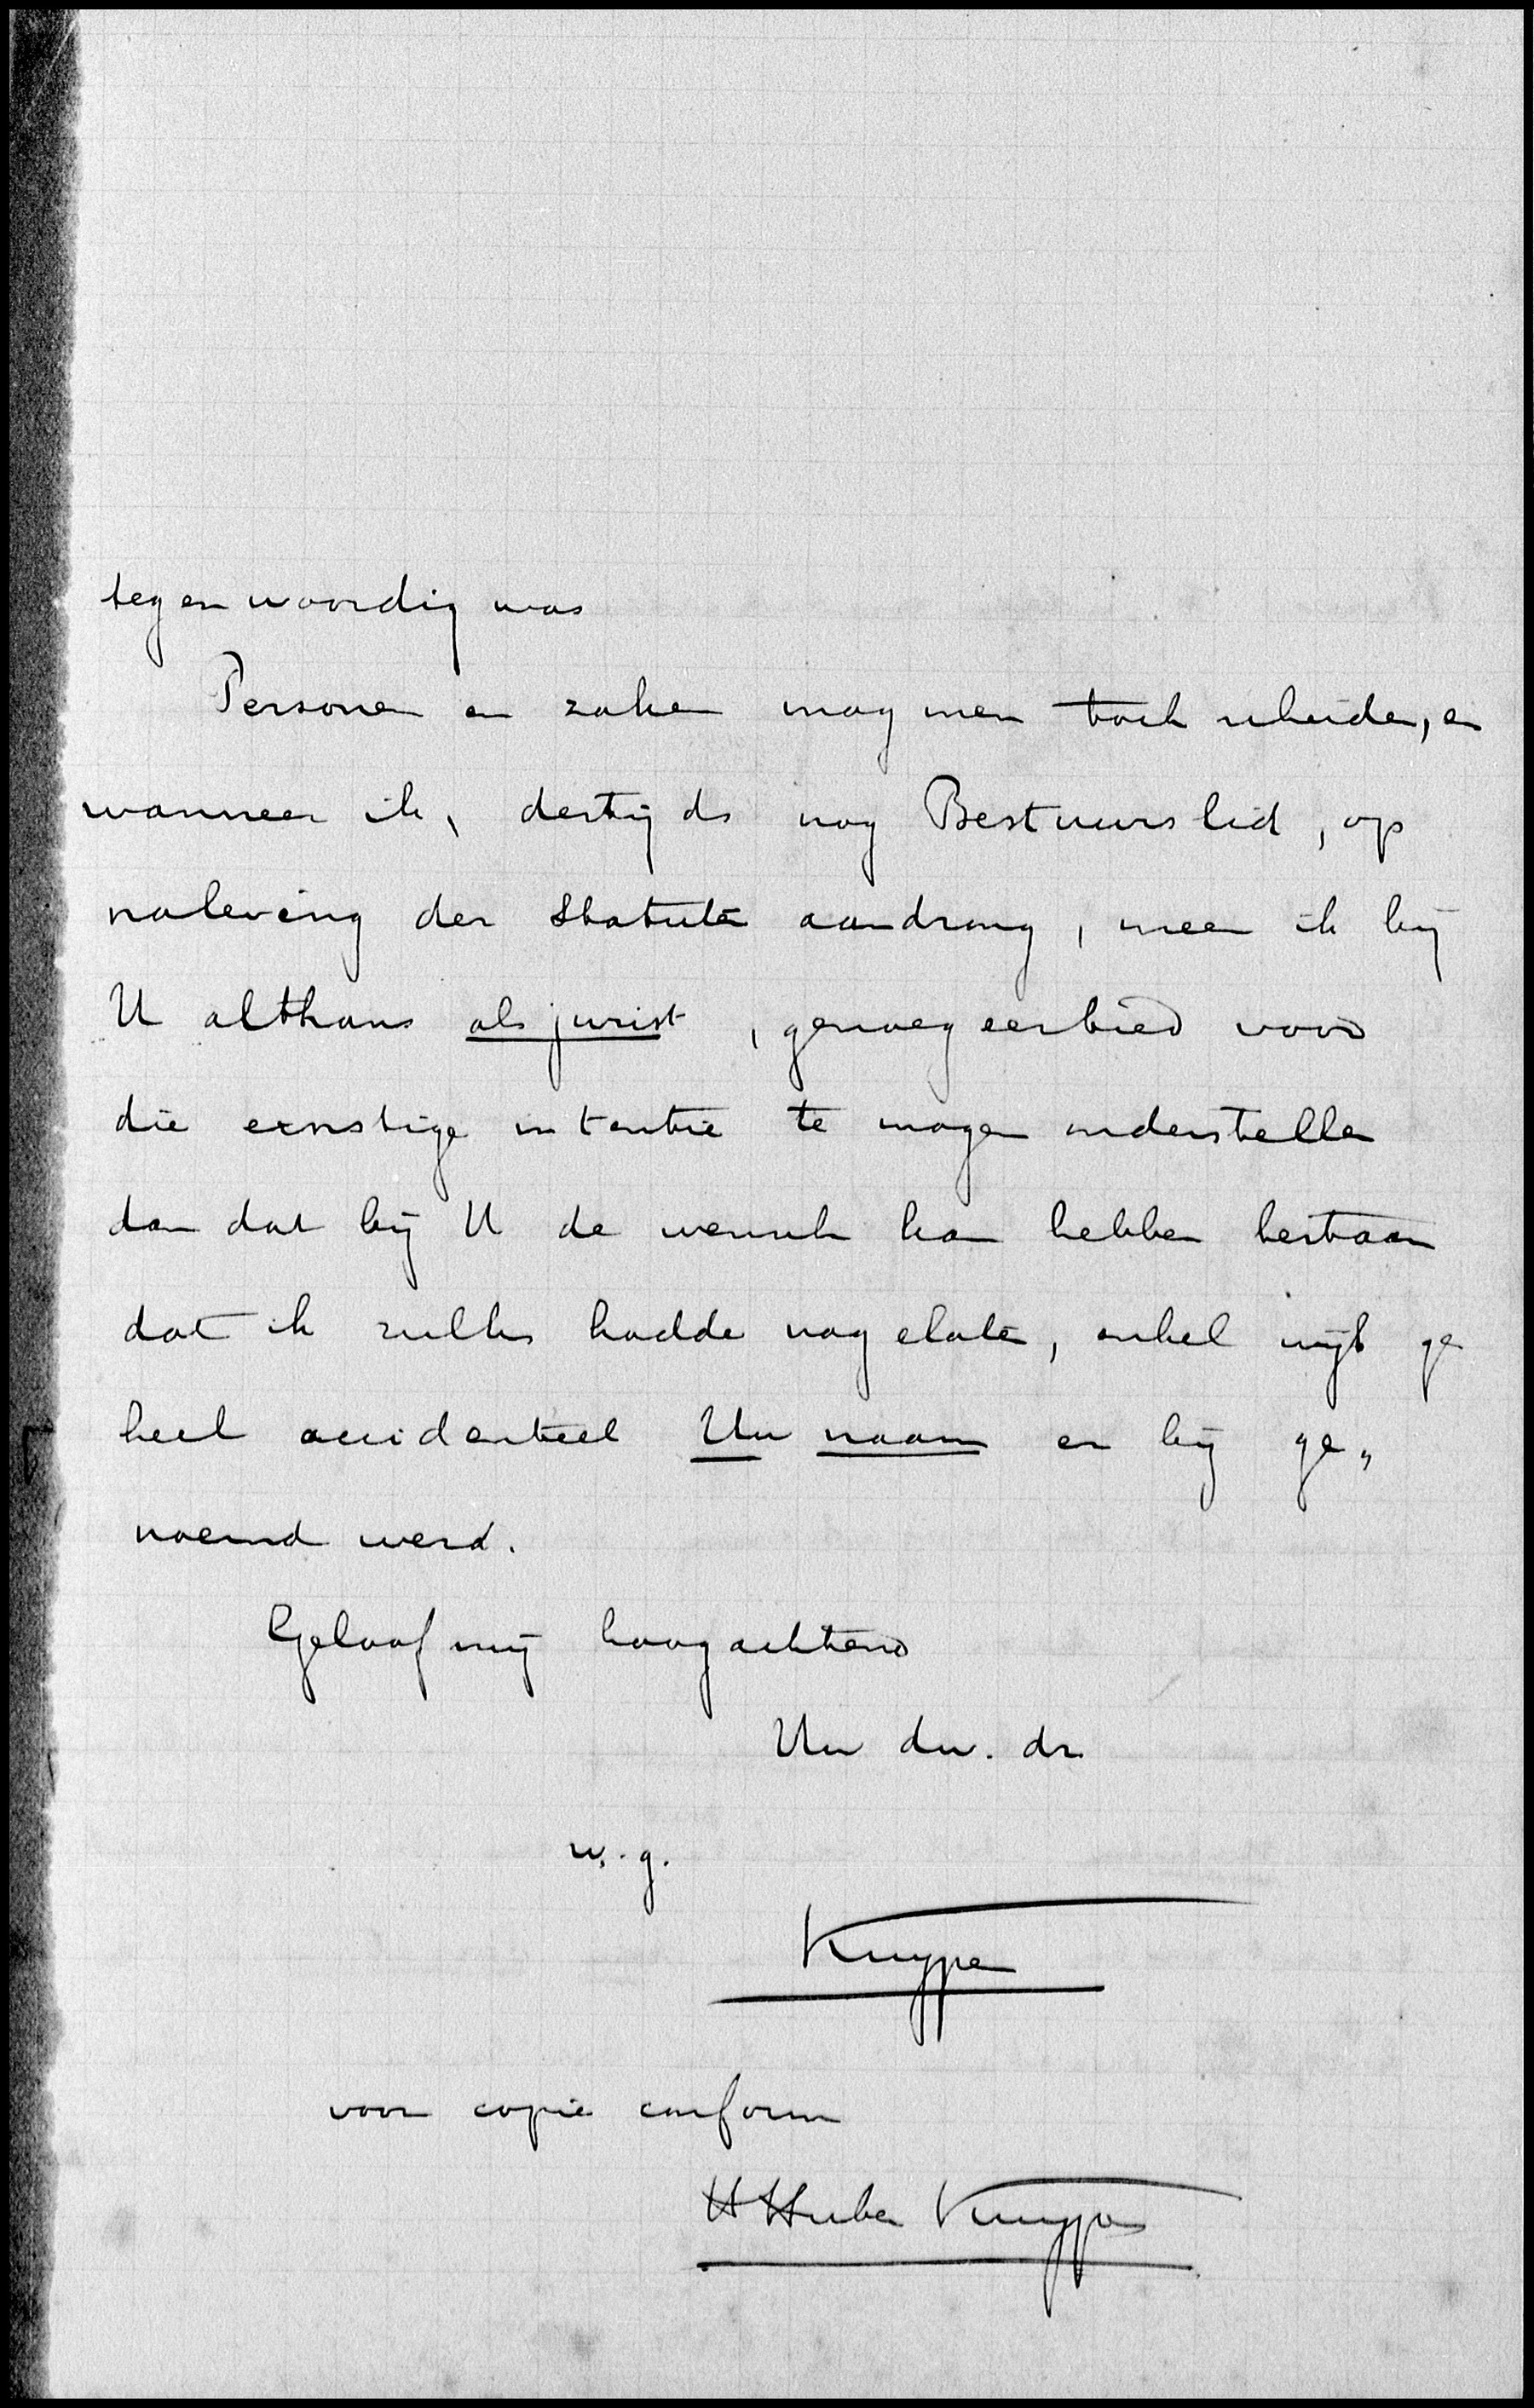 tegenwoordig was
Personen en zaken mag men toch scheiden, en
wanneer ik, destijds nog Bestuurslid, op
naleving der Statuten aandrong, meen ik bij
U althans als jurist, genoeg eerbied voor
die ernstige intentie te mogen onderstellen
dan dat bij U de wensch kan hebben bestaan
dat ik zulks hadde nagelaten, enkel wijl ge
heel accidenteel Uw naam er bij ge„
noemd werd.
Geloof mij hoogachtend
Uw dw. dr
w.g.
Kuyper
voor copie conform
HHuber Kuyper